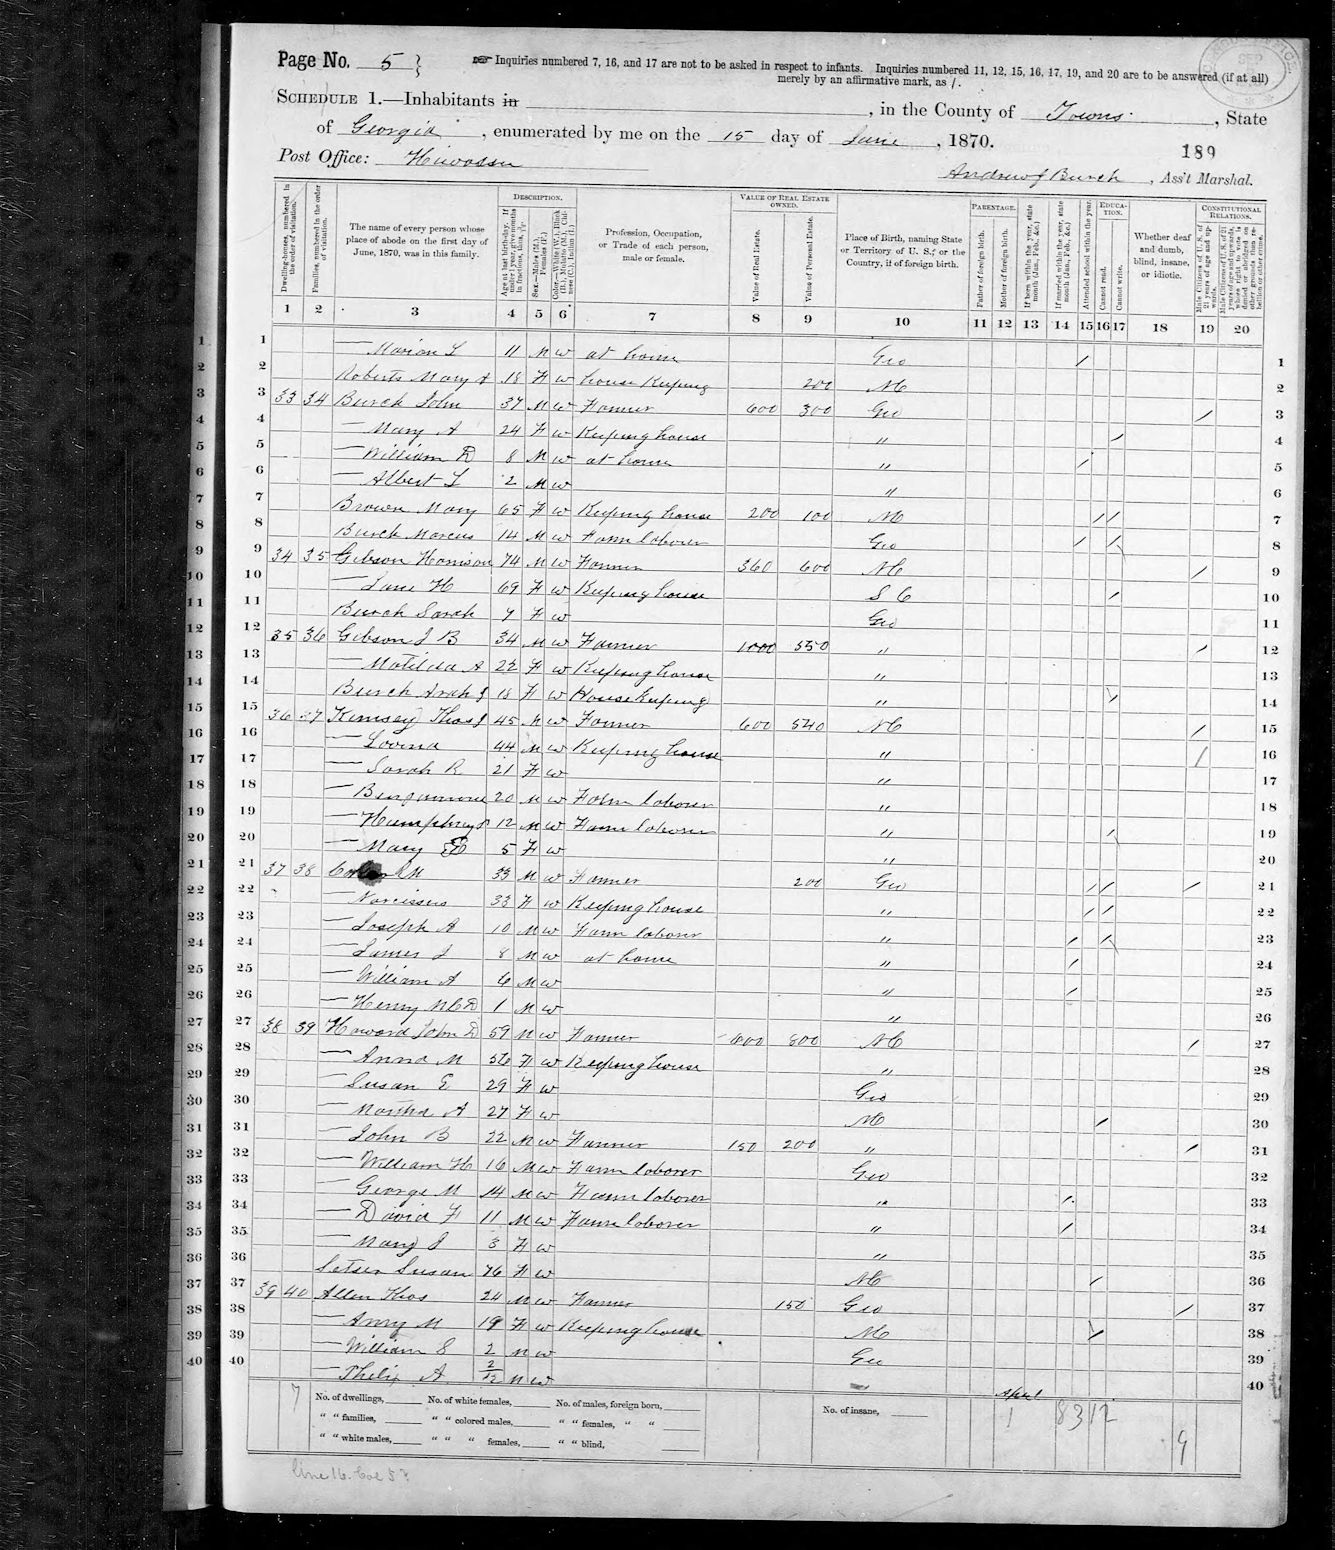 Page No. 5
Inquiries numbered 7, 16, and 17 are not to be asked in respect to infants. Inquiries numbered 11, 12, 15, 16, 17, 19, and 20 are to be answered (if at all)
merely by an affirmative mark, as /.
SCHEDULE 1.—Inhabitants in , in the County of Towns, State
of Georgia, enumerated by me on the 15 day of June, 1870.
189
Post Office: Hiwassee
Andrew J Burch, Ass't Marshal.
DESCRIPTION. VALUE OF REAL ESTATE OWNED. PARENTAGE. EDUCATION. CONSTITUTIONAL RELATIONS.
Dwelling-houses, numbered in the order of visitation.
Families, numbered in the order of visitation.
The name of every person whose place of abode on the first day of June, 1870, was in this family.
Age at last birth-day. If under 1 year, give months in fractions, thus, 3/12.
Sex.—Males (M.), Females (F.)
Color.—White (W.), Black (B.), Mulatto (M.), Chinese (C.), Indian (I.)
Profession, Occupation, or Trade of each person, male or female.
Value of Real Estate.
Value of Personal Estate.
Place of Birth, naming State or Territory of U. S.; or the Country, if of foreign birth.
Father of foreign birth.
Mother of foreign birth.
If born within the year, state month (Jan., Feb., &c.)
If married within the year, state month (Jan., Feb., &c.)
Attended school within the year.
Cannot read.
Cannot write.
Whether deaf and dumb, blind, insane, or idiotic.
Male Citizens of U. S. of 21 years of age and upwards.
Male Citizens of U. S. of 21 years of age and upwards, whose right to vote is denied or abridged on other grounds than rebellion or other crime.
1 2 3 4 5 6 7 8 9 10 11 12 13 14 15 16 17 18 19 20
1 — Marion L 11 M W at home Geo / 1
2 Roberts Mary A 18 F W house Keeping 200 NC 2
3 33 34 Burch John 37 M W Farmer 600 300 Geo / 3
4 — Mary A 24 F W Keeping house " / 4
5 — William D 8 M W at home " / 5
6 — Albert L 2 M W " 6
7 Brown Mary 65 F W Keeping house 200 100 NC / / 7
8 Burch Marcus 14 M W Farm laborer Geo / / 8
9 34 35 Gibson Harrison 74 M W Farmer 360 600 NC / 9
10 — Jane H 69 F W Keeping house S C / 10
11 Burch Sarah 7 F W Geo 11
12 35 36 Gibson J B 34 M W Farmer 1000 550 " / 12
13 — Matilda A 22 F W Keeping house " 13
14 Burch Arah J 18 F W House Keeping " / 14
15 36 37 Kimsey Thos J 45 M W Farmer 600 540 NC / 15
16 — Lovina 44 M W Keeping house " / 16
17 — Sarah R 21 F W " 17
18 — Benjamine 20 M W Farm laborer " 18
19 — Humphrey P 12 M W Farm laborer " / 19
20 — Mary E 5 F W " 20
21 37 38 M 33 M W Farmer 200 Geo / / / 21
22 — Narcissus 33 F W Keeping house " / / 22
23 — Joseph A 10 M W Farm laborer " / / 23
24 — James J 8 M W at home " / 24
25 — William A 6 M W " / 25
26 — Henry M C D 1 M W " 26
27 38 39 Howard John D 59 M W Farmer 600 800 NC / 27
28 — Anna M 56 F W Keeping house " 28
29 — Susan E 29 F W Geo 29
30 — Martha A 27 F W NC / 30
31 — John B 22 M W Farmer 150 200 " / 31
32 — William H 16 M W Farm laborer Geo 32
33 — George M 14 M W Farm laborer " / 33
34 — David F 11 M W Farm laborer " / 34
35 — Mary J 3 F W " 35
36 Setser Susan 76 F W NC / 36
37 39 40 Allen Thos 24 M W Farmer 150 Geo / 37
38 — Amy M 19 F W Keeping house NC / 38
39 — William S 2 M W Geo 39
40 — Philip A 2/12 M W " April 40
7 No. of dwellings, No. of white females, No. of males, foreign born, No. of insane, 1 8 3 12
" " families, " " colored males, " " females, " "
" " white males, " " " females, " " blind, 9
line 16. Col 5?